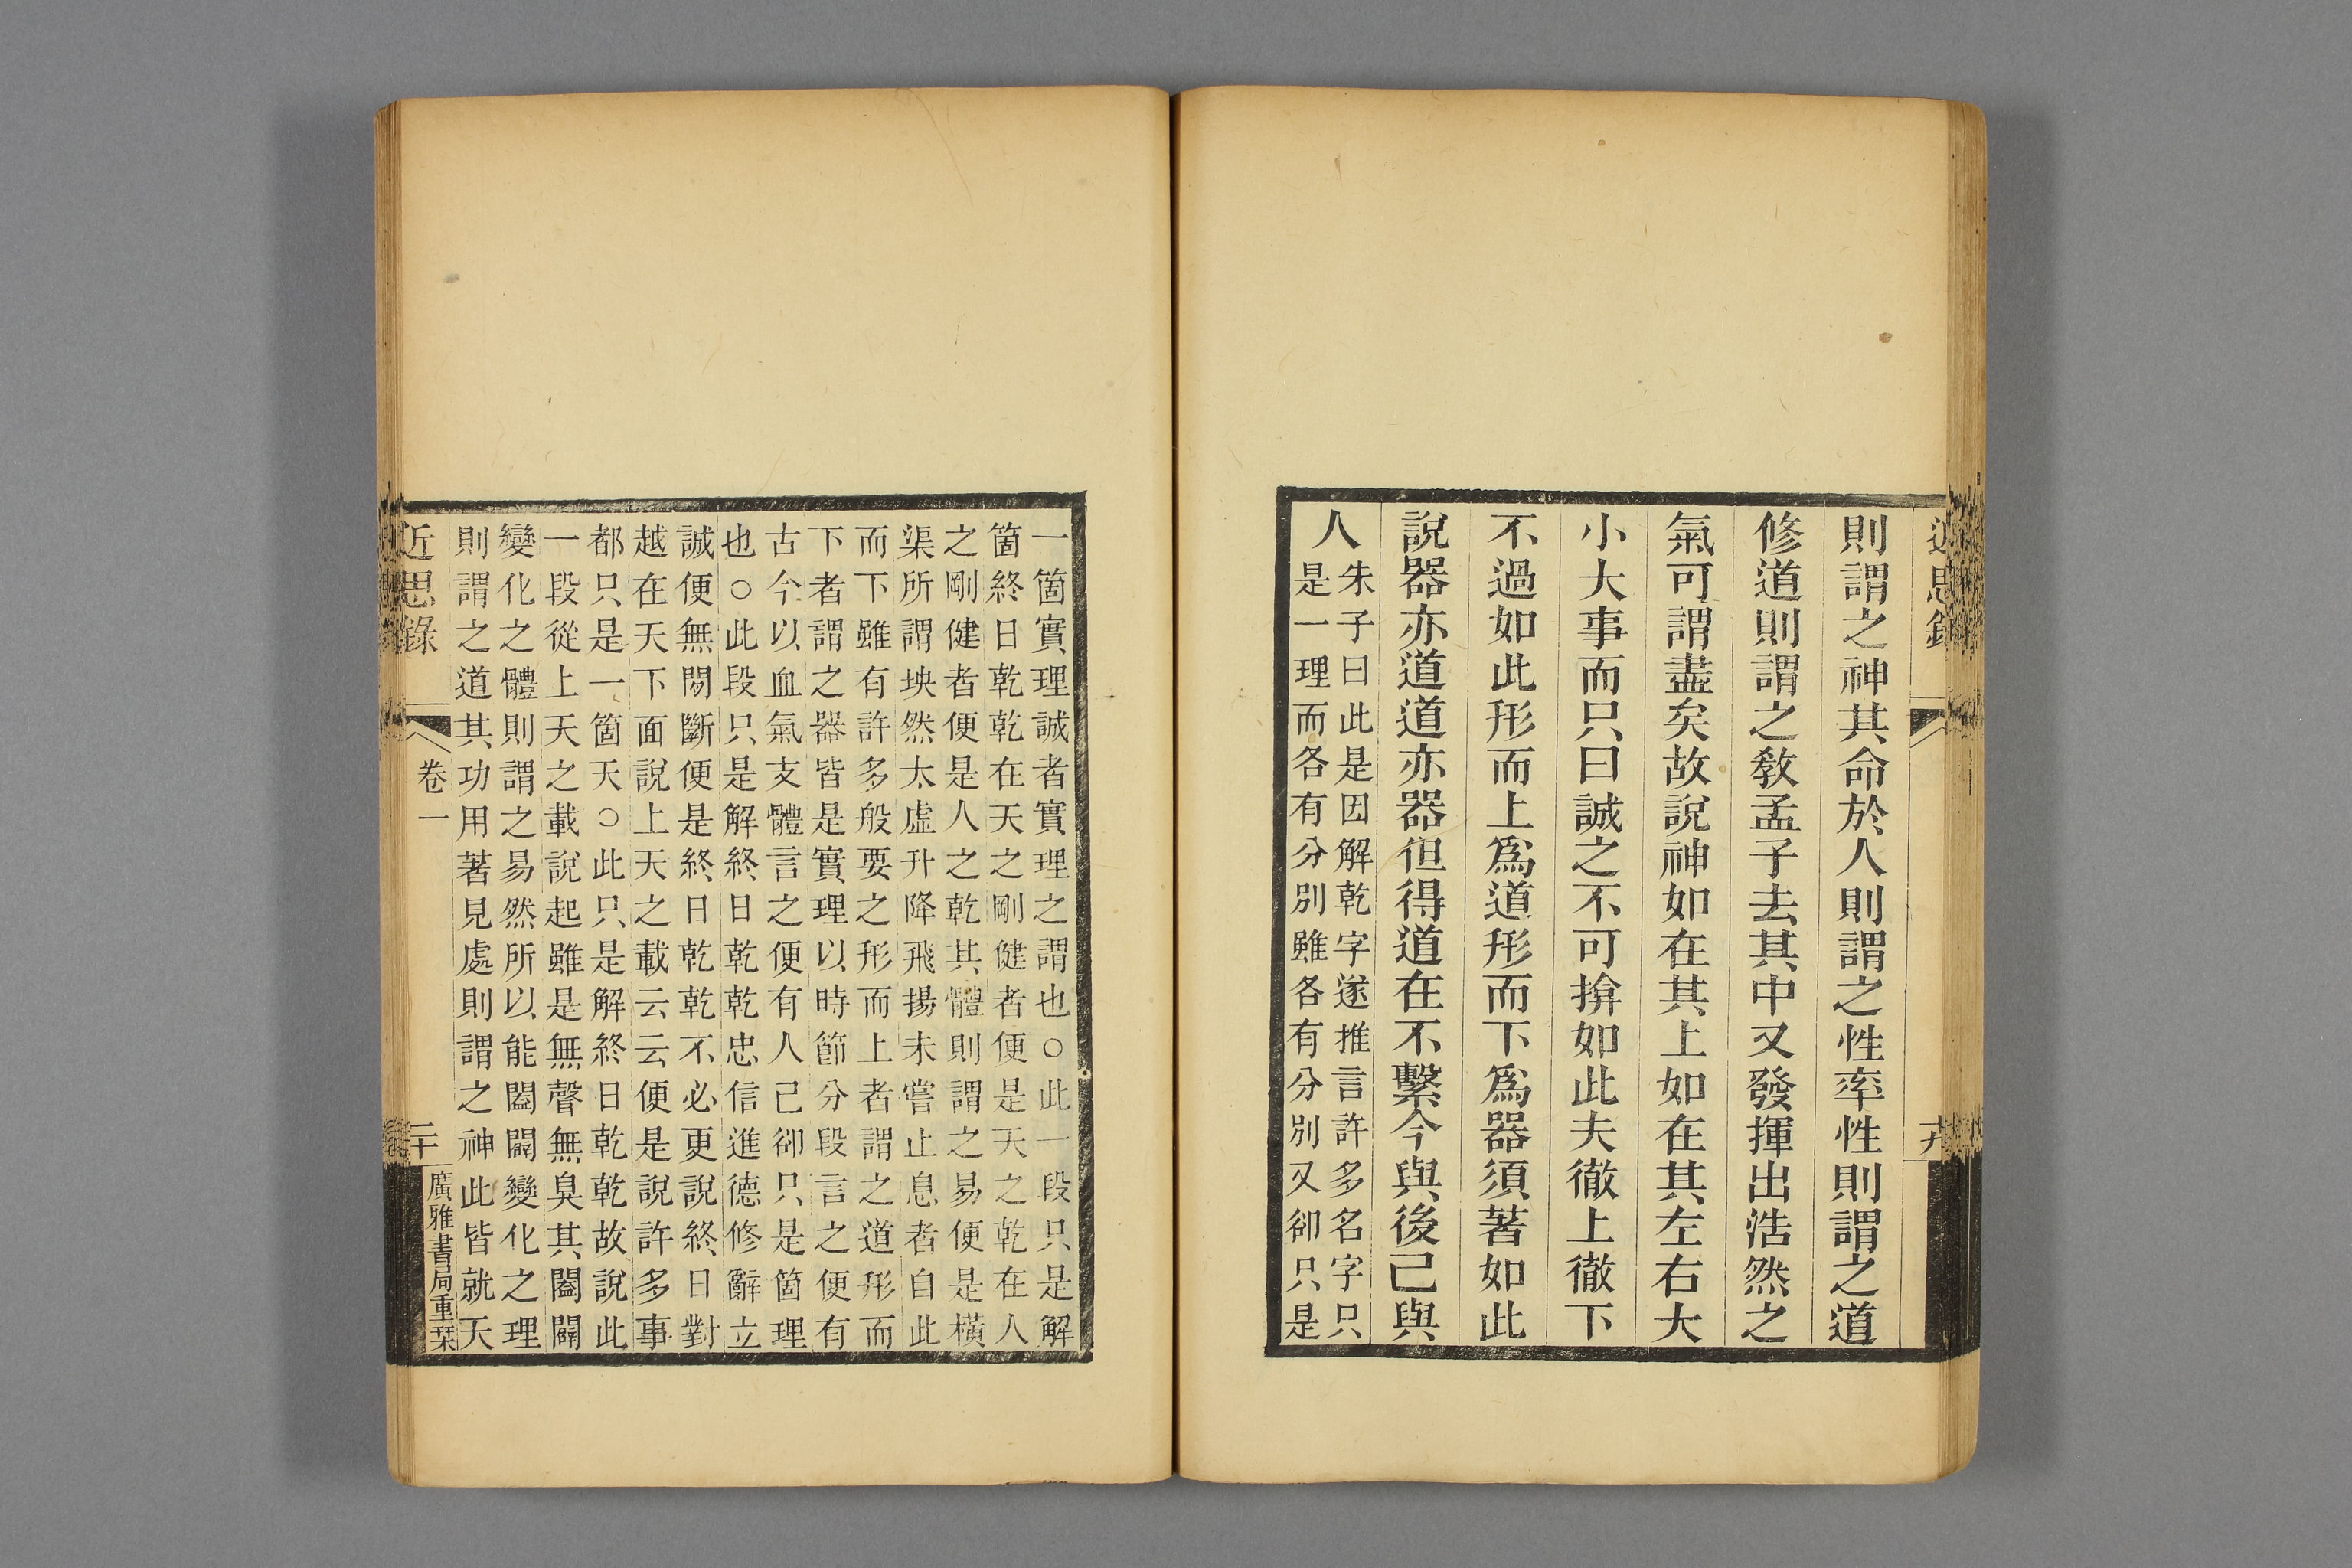 近思錄
十九
則謂之神其命於人則謂之性率性則謂之道
修道則謂之敎孟子去其中又發揮出浩然之
氣可謂盡矣故說神如在其上如在其左右大
小大事而只曰誠之不可揜如此夫徹上徹下
不過如此形而上爲道形而下爲器須著如此
說器亦道道亦器但得道在不繫今與後己與
人
朱子曰此是因解乾字遂推言許多名字只
是一理而各有分別雖各有分別又卻只是
一箇實理誠者實理之謂也○此一段只是解
箇終日乾乾在天之剛健者便是天之乾在人
之剛健者便是人之乾其體則謂之易便是橫
渠所謂坱然太虛升降飛揚未嘗止息者自此
而下雖有許多般要之形而上者謂之道形而
下者謂之器皆是實理以時節分段言之便有
古今以血氣支體言之便有人己卻只是箇理
也○此段只是解終日乾乾忠信進德修辭立
誠便無閒斷便是終日乾乾不必更說終日對
越在天下面說上天之載云云便是說許多事
都只是一箇天○此只是解終日乾乾故說此
一段從上天之載說起雖是無聲無臭其闔闢
變化之體則謂之易然所以能闔闢變化之理
則謂之道其功用著見處則謂之神此皆就天
近思錄
卷一
二十
廣雅書局重栞